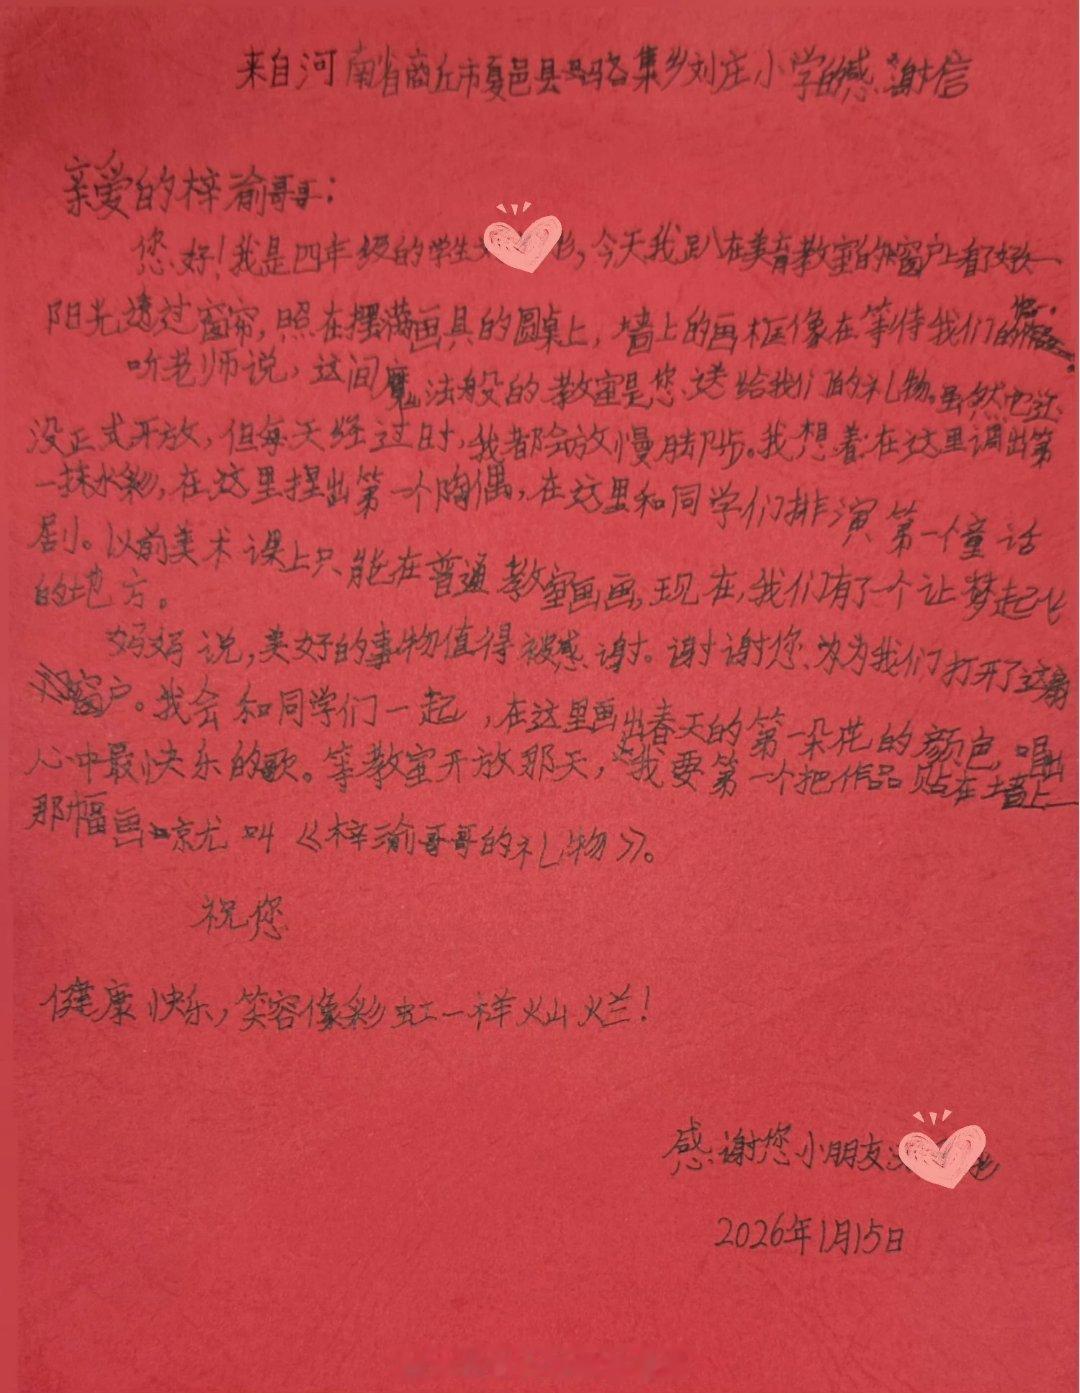 来自河南省商丘市夏邑县骆集乡刘庄小学的感谢信
亲爱的梓渝哥哥：
您好！我是四年级的学生，今天我趴在美育教室的窗户上看了好久
阳光透过窗帘，照在摆满画具的圆桌上，墙上的画框像在等待我们的作品。
听老师说，这间魔法般的教室是您送给我们的礼物。虽然它还
没正式开放，但每天经过时，我都会放慢脚步。我想着在这里调出第
一抹水彩，在这里捏出第一个陶偶，在这里和同学们排演第一个童话
剧。以前美术课上只能在普通教室画画，现在，我们有了一个让梦起飞
的地方。
妈妈说，美好的事物值得被感谢。谢谢您为我们打开了这扇
窗户。我会和同学们一起，在这里画出春天的第一朵花的颜色，唱出
心中最快乐的歌。等教室开放那天，我要第一个把作品贴在墙上
那幅画就叫《梓渝哥哥的礼物》。
祝您
健康快乐，笑容像彩虹一样灿烂！
感谢您小朋友
2026年1月15日